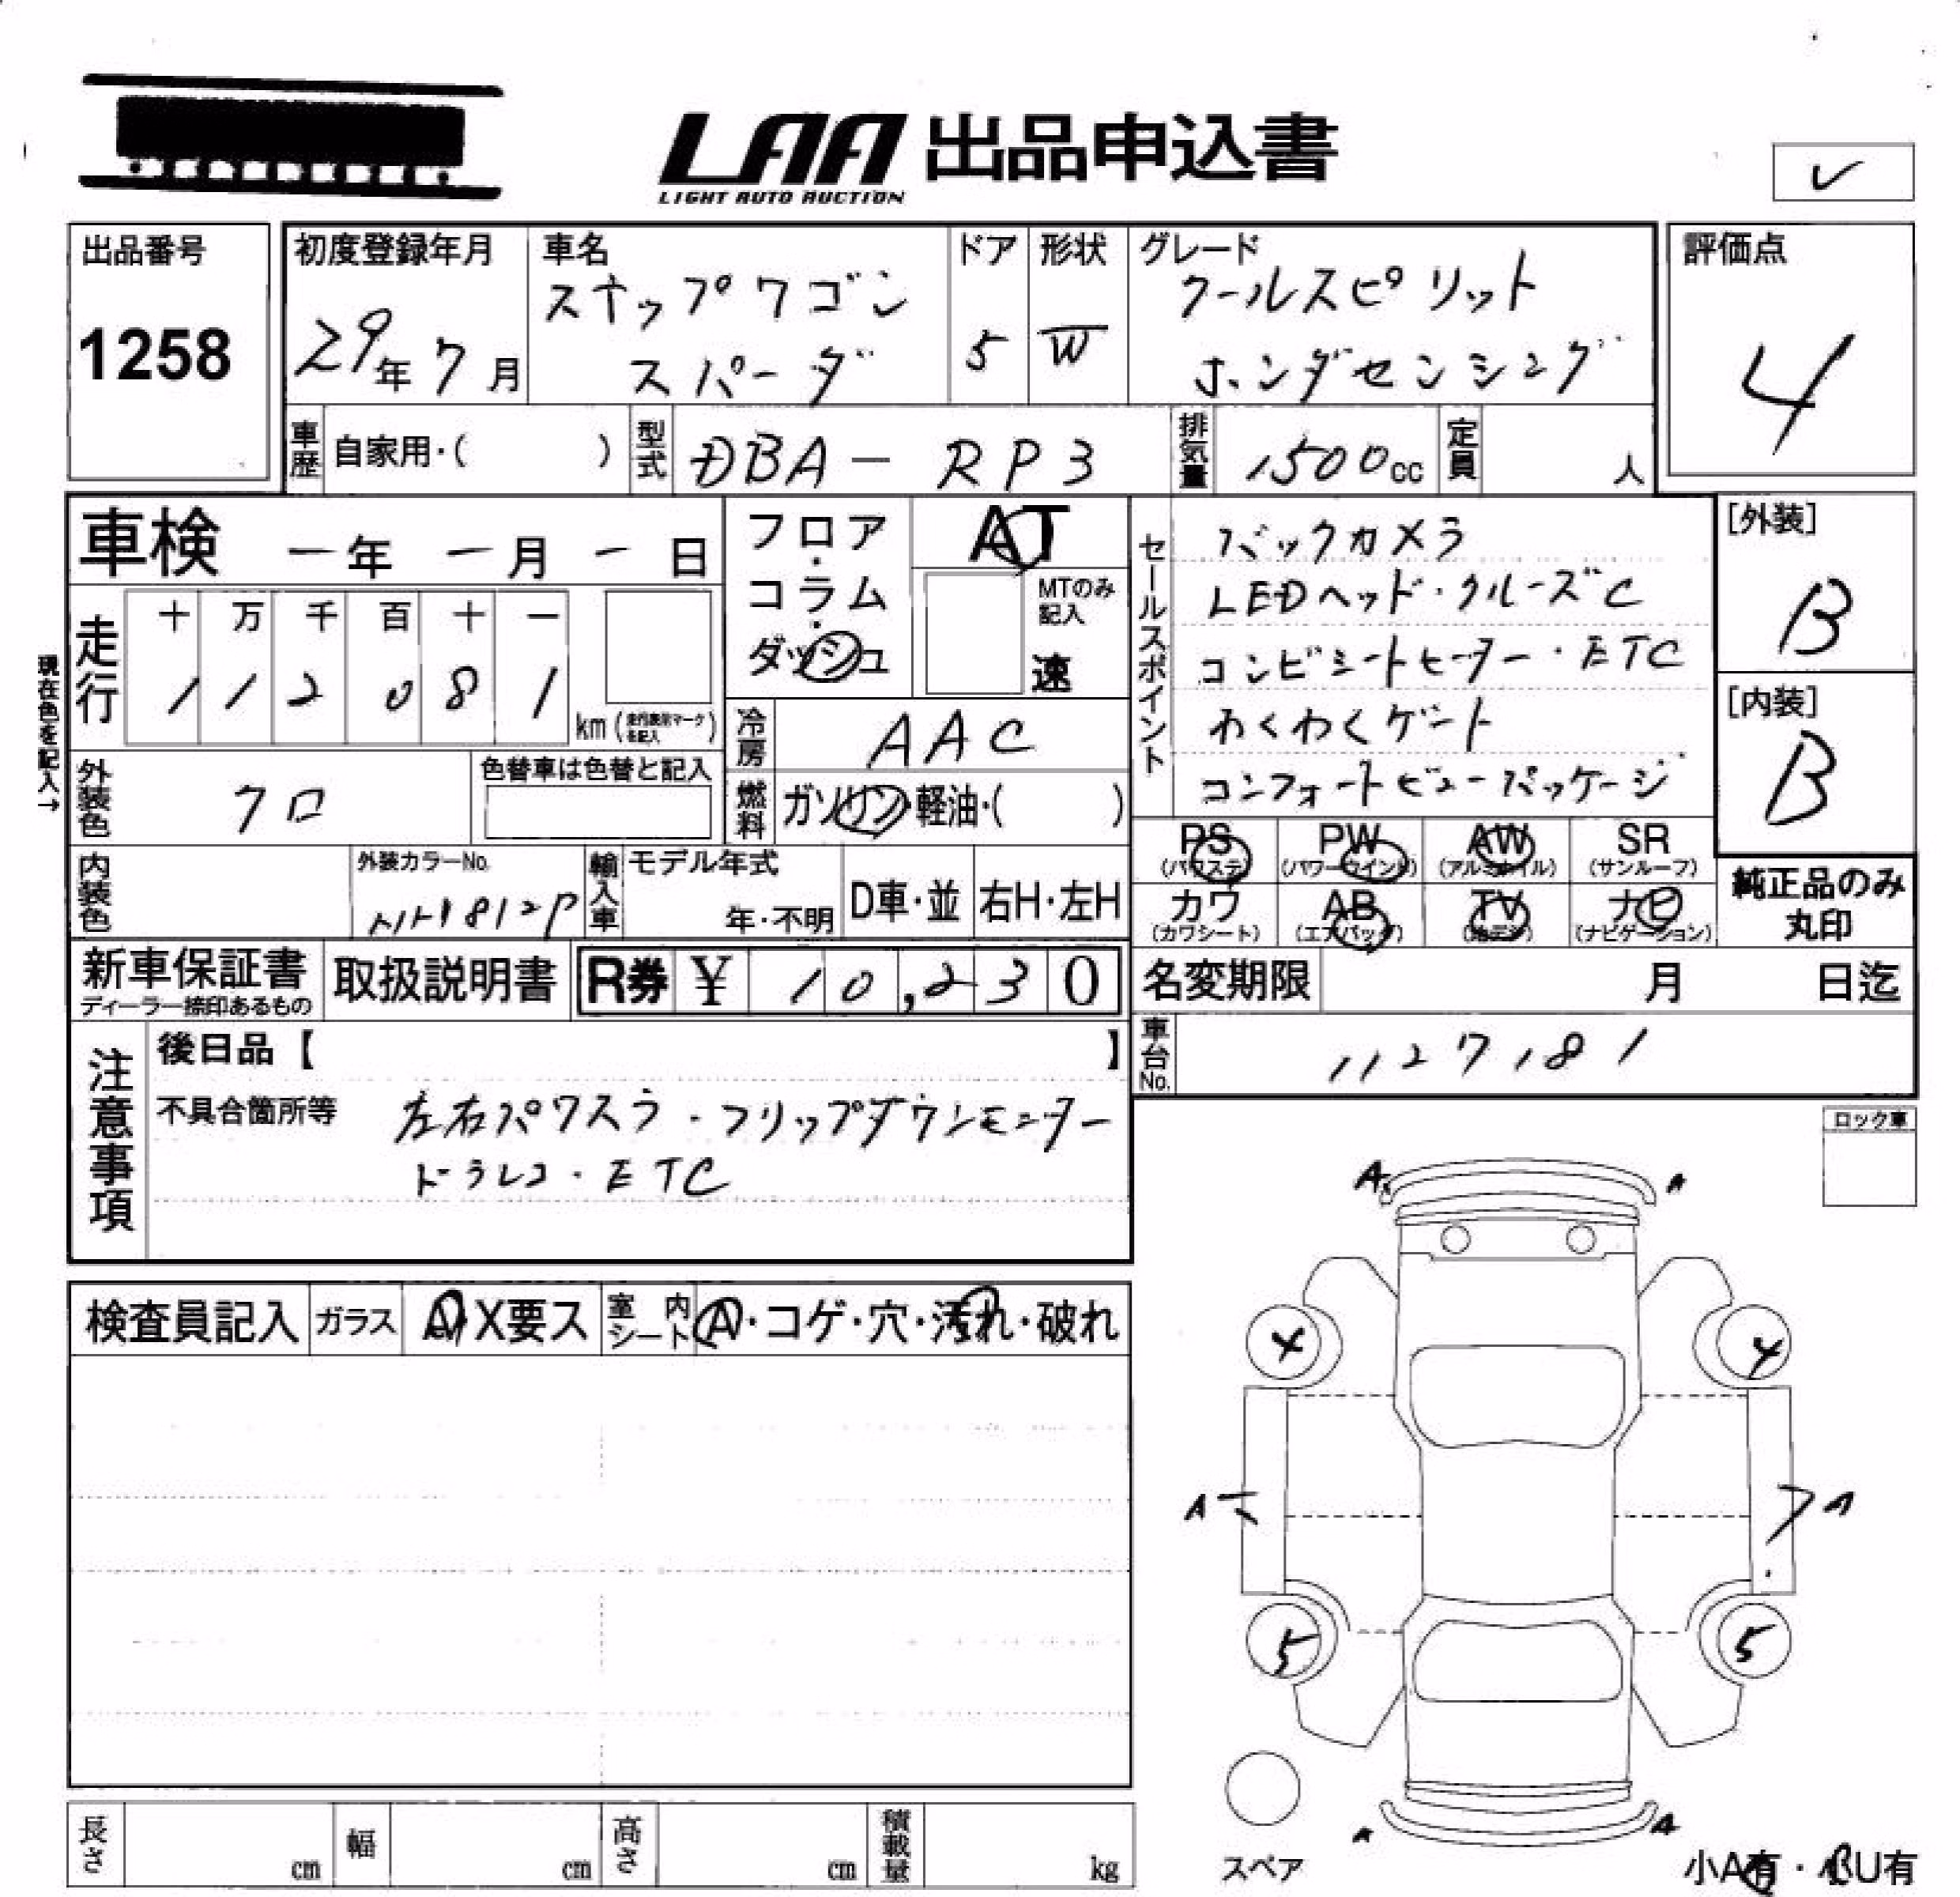 LAA 出品申込書
LIGHT AUTO AUCTION
✓
出品番号
1258
初度登録年月
29年7月
車名
ステップワゴン
スパーダ
ドア
5
形状
W
グレード
クールスピリット
ホンダセンシング
評価点
4
車歴 自家用・( )
型式 DBA-RP3
排気量 1500cc
定員 人
車検 ー年 ー月 ー日
フロア・コラム・ダッシュ
AT
MTのみ記入
速
セールスポイント
バックカメラ
LEDヘッド・クルーズC
コンビシートヒーター・ETC
わくわくゲート
コンフォートビューパッケージ
[外装]
B
[内装]
B
現在色を記入→
走行
十 万 千 百 十 一
1 1 2 0 8 1
km (走行表示マークを記入)
冷房 AAC
外装色 クロ
色替車は色替と記入
燃料 ガソリン・軽油・( )
PS (パワステ) PW (パワーウインド) AW (アルミホイル) SR (サンルーフ)
カワ (カワシート) AB (エアバッグ) TV (地デジ) ナビ (ナビゲーション)
純正品のみ
丸印
内装色
外装カラーNo.
812P
輸入車
モデル年式
年・不明
D車・並
右H・左H
新車保証書
ディーラー捺印あるもの
取扱説明書
R券 ¥ 10,230
名変期限 月 日迄
車台No. 1127181
注意事項
後日品【 】
不具合箇所等 左右パワスラ・フリップダウンモニター
ドラレコ・ETC
ロック車
検査員記入
ガラス A・X要ス
室内シート A・コゲ・穴・汚れ・破れ
A A
4 4
A A
5 5
A A
スペア
小A有・小U有
長さ cm
幅 cm
高さ cm
積載量 kg